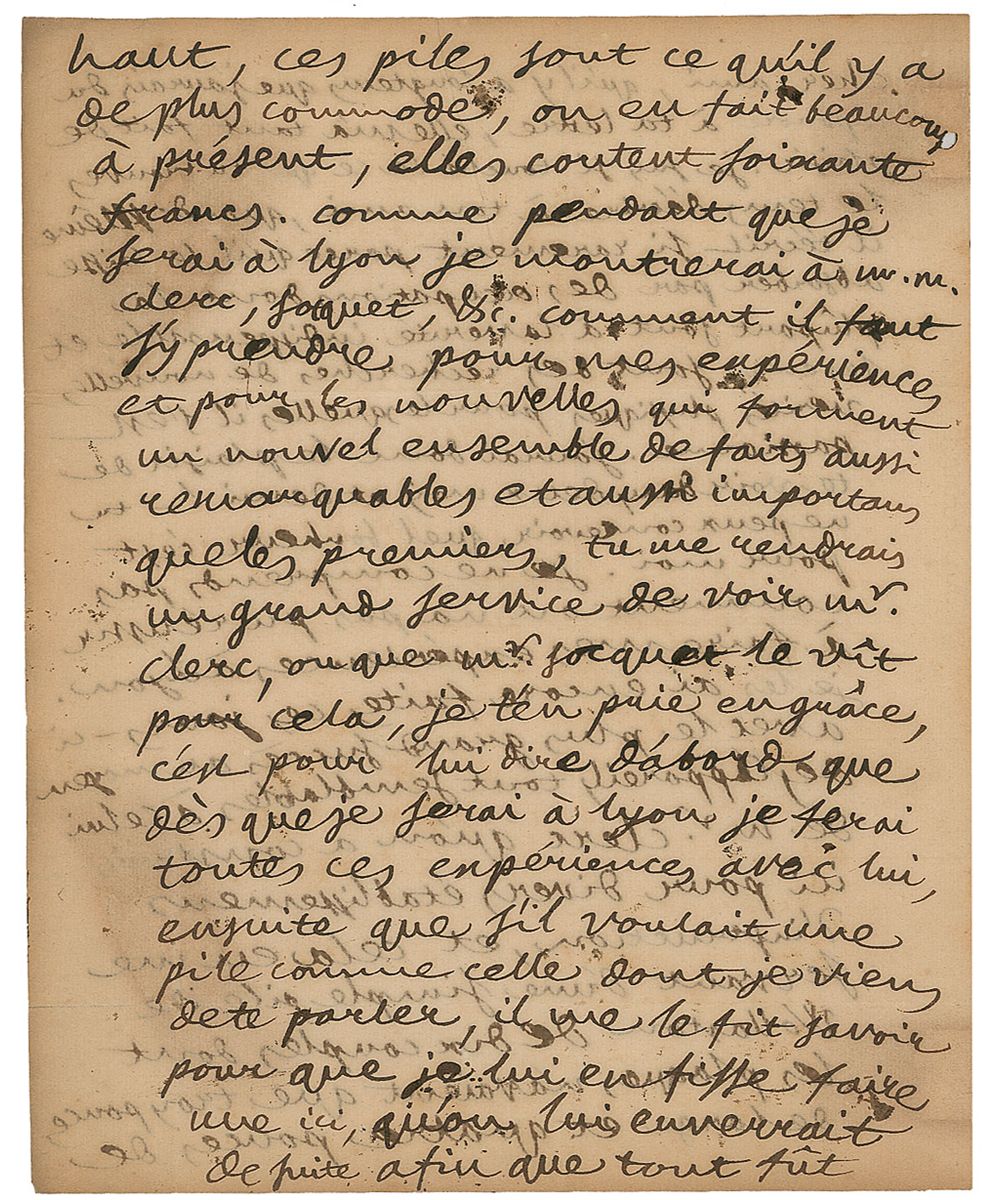 haut, ces piles sont ce qu'il y a
de plus commode, on en fait beaucoup
à présent, elles coutent soixante
francs. comme pendant que je
serai à lyon je montrerai à mr. m.
clerc, socquet, &c. comment il faut
s'y prendre pour mes expériences
et pour les nouvelles qui forment
un nouvel ensemble de faits aussi
remarquables et aussi importans
que les premiers, tu me rendrais
un grand service de voir mr.
clerc, ou que mr. socquet le vît
pour cela, je t'en prie en grâce,
c'est pour lui dire d'abord que
dès que je serai à lyon je ferai
toutes ces expériences avec lui,
ensuite que s'il voulait une
pile comme celle dont je viens
de te parler, il me le fit savoir
pour que je lui en fisse faire
une ici, qu'on lui enverrait
de suite afin que tout fût